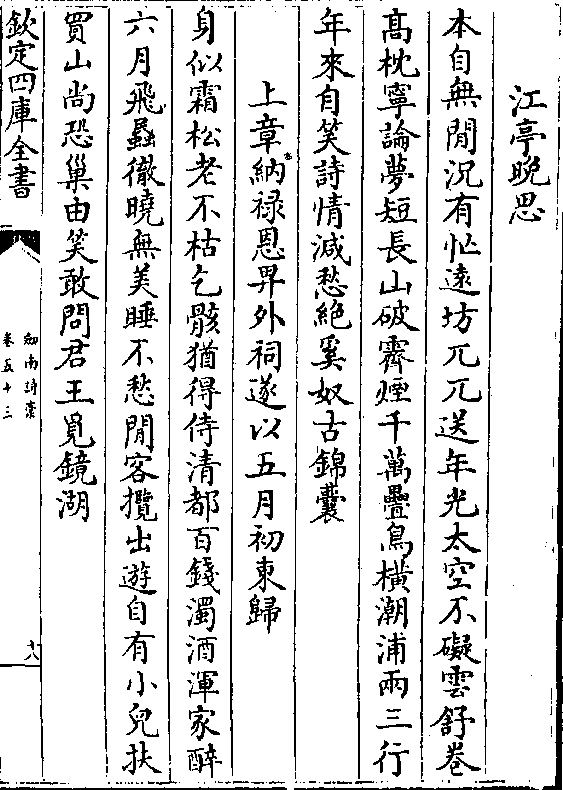 江亭晚思
本自無閒況有忙逺坊兀兀送年光太空不礙雲舒卷
髙枕寧論夢短長山破霽煙千萬疊鳥橫潮浦兩三行
年來自笑詩情減愁絶奚奴古錦囊
上章納禄恩畀外祠遂以五月初東歸
身似霜松老不枯乞骸猶得侍清都百錢濁酒渾家醉
六月飛蟁徹曉無美睡不愁閒客攪出遊自有小兒扶
買山尚恐巢由笑敢問君王覓鏡湖
欽定四庫全書
劒南詩藁
卷五十三
十八